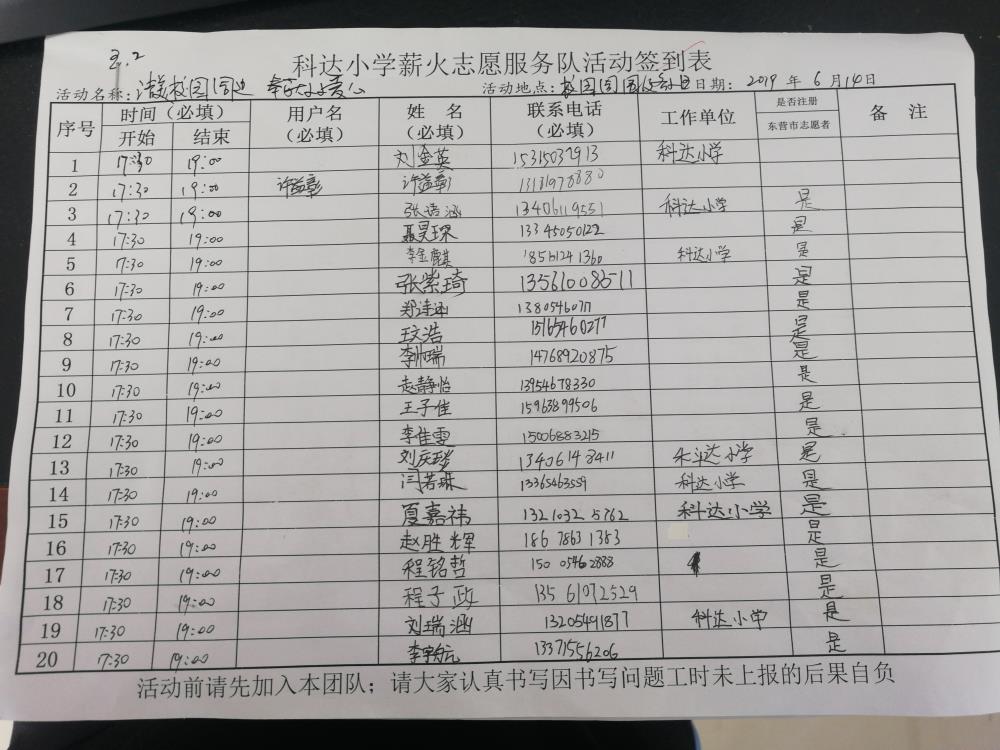 3.2
科达小学薪火志愿服务队活动签到表
活动名称: 校园周边 奉献爱心 活动地点: 校园周围 日期: 2019 年 6 月 14 日
序号 时间（必填） 开始 结束 用户名（必填） 姓 名（必填） 联系电话（必填） 工作单位 是否注册东营市志愿者 备 注
1 17:30 19:00 刘金英 15315037913 科达小学
2 17:30 19:00 许益彰 许益彰 13181978880
3 17:30 19:00 张语涵 13406119551 科达小学 是
4 17:30 19:00 聂昊琛 13345050122 是
5 17:30 19:00 李金麒 科达小学 是
6 17:30 19:00 张紫琦 13561008511 是
7 17:30 19:00 郑诗涵 是
8 17:30 19:00 王文浩 15165460277 是
9 17:30 19:00 14768920875 是
10 17:30 19:00 赵静怡 13954678330 是
11 17:30 19:00 王子佳 15963899506 是
12 17:30 19:00 李佳雯 15006883215 是
13 17:30 19:00 13406148411 科达小学 是
14 17:30 19:00 闫若琳 13365463559 科达小学 是
15 17:30 19:00 夏嘉祎 1321032 5762 科达小学 是
16 17:30 19:00 赵胜辉 186 7863 1383 是
17 17:30 19:00 程铭哲 150 0546 2888 是
18 17:30 19:00 程子政 135 61072529 是
19 17:30 19:00 刘瑞涵 13205491877 科达小学 是
20 17:30 19:00 李宇航 13371556206 是
活动前请先加入本团队；请大家认真书写因书写问题工时未上报的后果自负